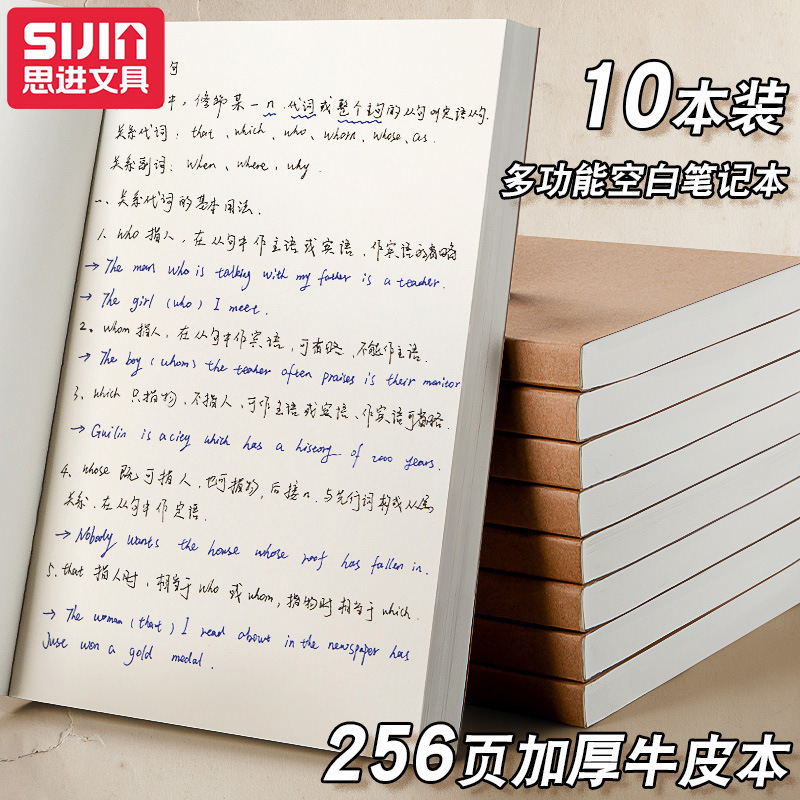 SIJIN
思进文具
10本装
多功能空白笔记本
句
,修饰某一n.代词或整个主句的从句叫定语从句.
关系代词:that、which、who、whom、whose、as.
关系副词:when、where、why.
一、关系代词的基本用法.
1. who指人,在从句中作主语或宾语、作宾语可省略
→ The man who is talking with my father is a teacher.
→ The girl (who) I meet.
2、whom指人,在从句中作宾语,可省略、不能作主语.
→ The boy (whom) the teacher often praises is their monitor
3、which 只指物、不指人、可作主语或宾语、作宾语可省略.
→ Guilin is a city which has a history of 2000 years.
4、whose 既可指人,也可指物,后接n.与先行词构成从属
关系、在从句中作定语.
→ Nobody wants the house whose roof has fallen in.
5. that 指人时,相当于who 或whom,指物时相当于which.
→ The woman (that) I read about in the newspaper has
Just won a gold medal.
256页加厚牛皮本